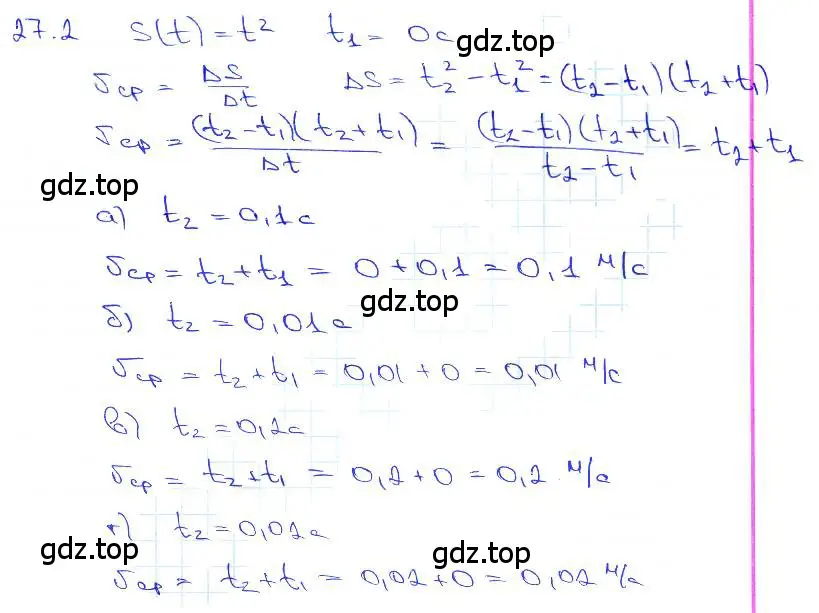 27.2 S(t) = t² t₁ = 0с
gdz.top
υср = ΔS/Δt ΔS = t₂² - t₁² = (t₂ - t₁)(t₂ + t₁)
υср = (t₂ - t₁)(t₂ + t₁)/Δt = (t₂ - t₁)(t₂ + t₁)/(t₂ - t₁) = t₂ + t₁
gdz.top
а) t₂ = 0,1с
υср = t₂ + t₁ = 0 + 0,1 = 0,1 м/с
gdz.top
б) t₂ = 0,01с
υср = t₂ + t₁ = 0,01 + 0 = 0,01 м/с
в) t₂ = 0,2с
υср = t₂ + t₁ = 0,2 + 0 = 0,2 м/с
г) t₂ = 0,02с
gdz.top gdz.top
υср = t₂ + t₁ = 0,02 + 0 = 0,02 м/с